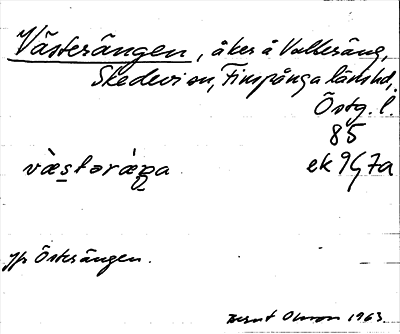 Västerängen, åker å Valleräng,
Skedevi sn, Finspånga länshd,
Östg. l.
85
vàstəráŋa ek 9G7a
Jfr Österängen.
Bernt Olsson 1963.